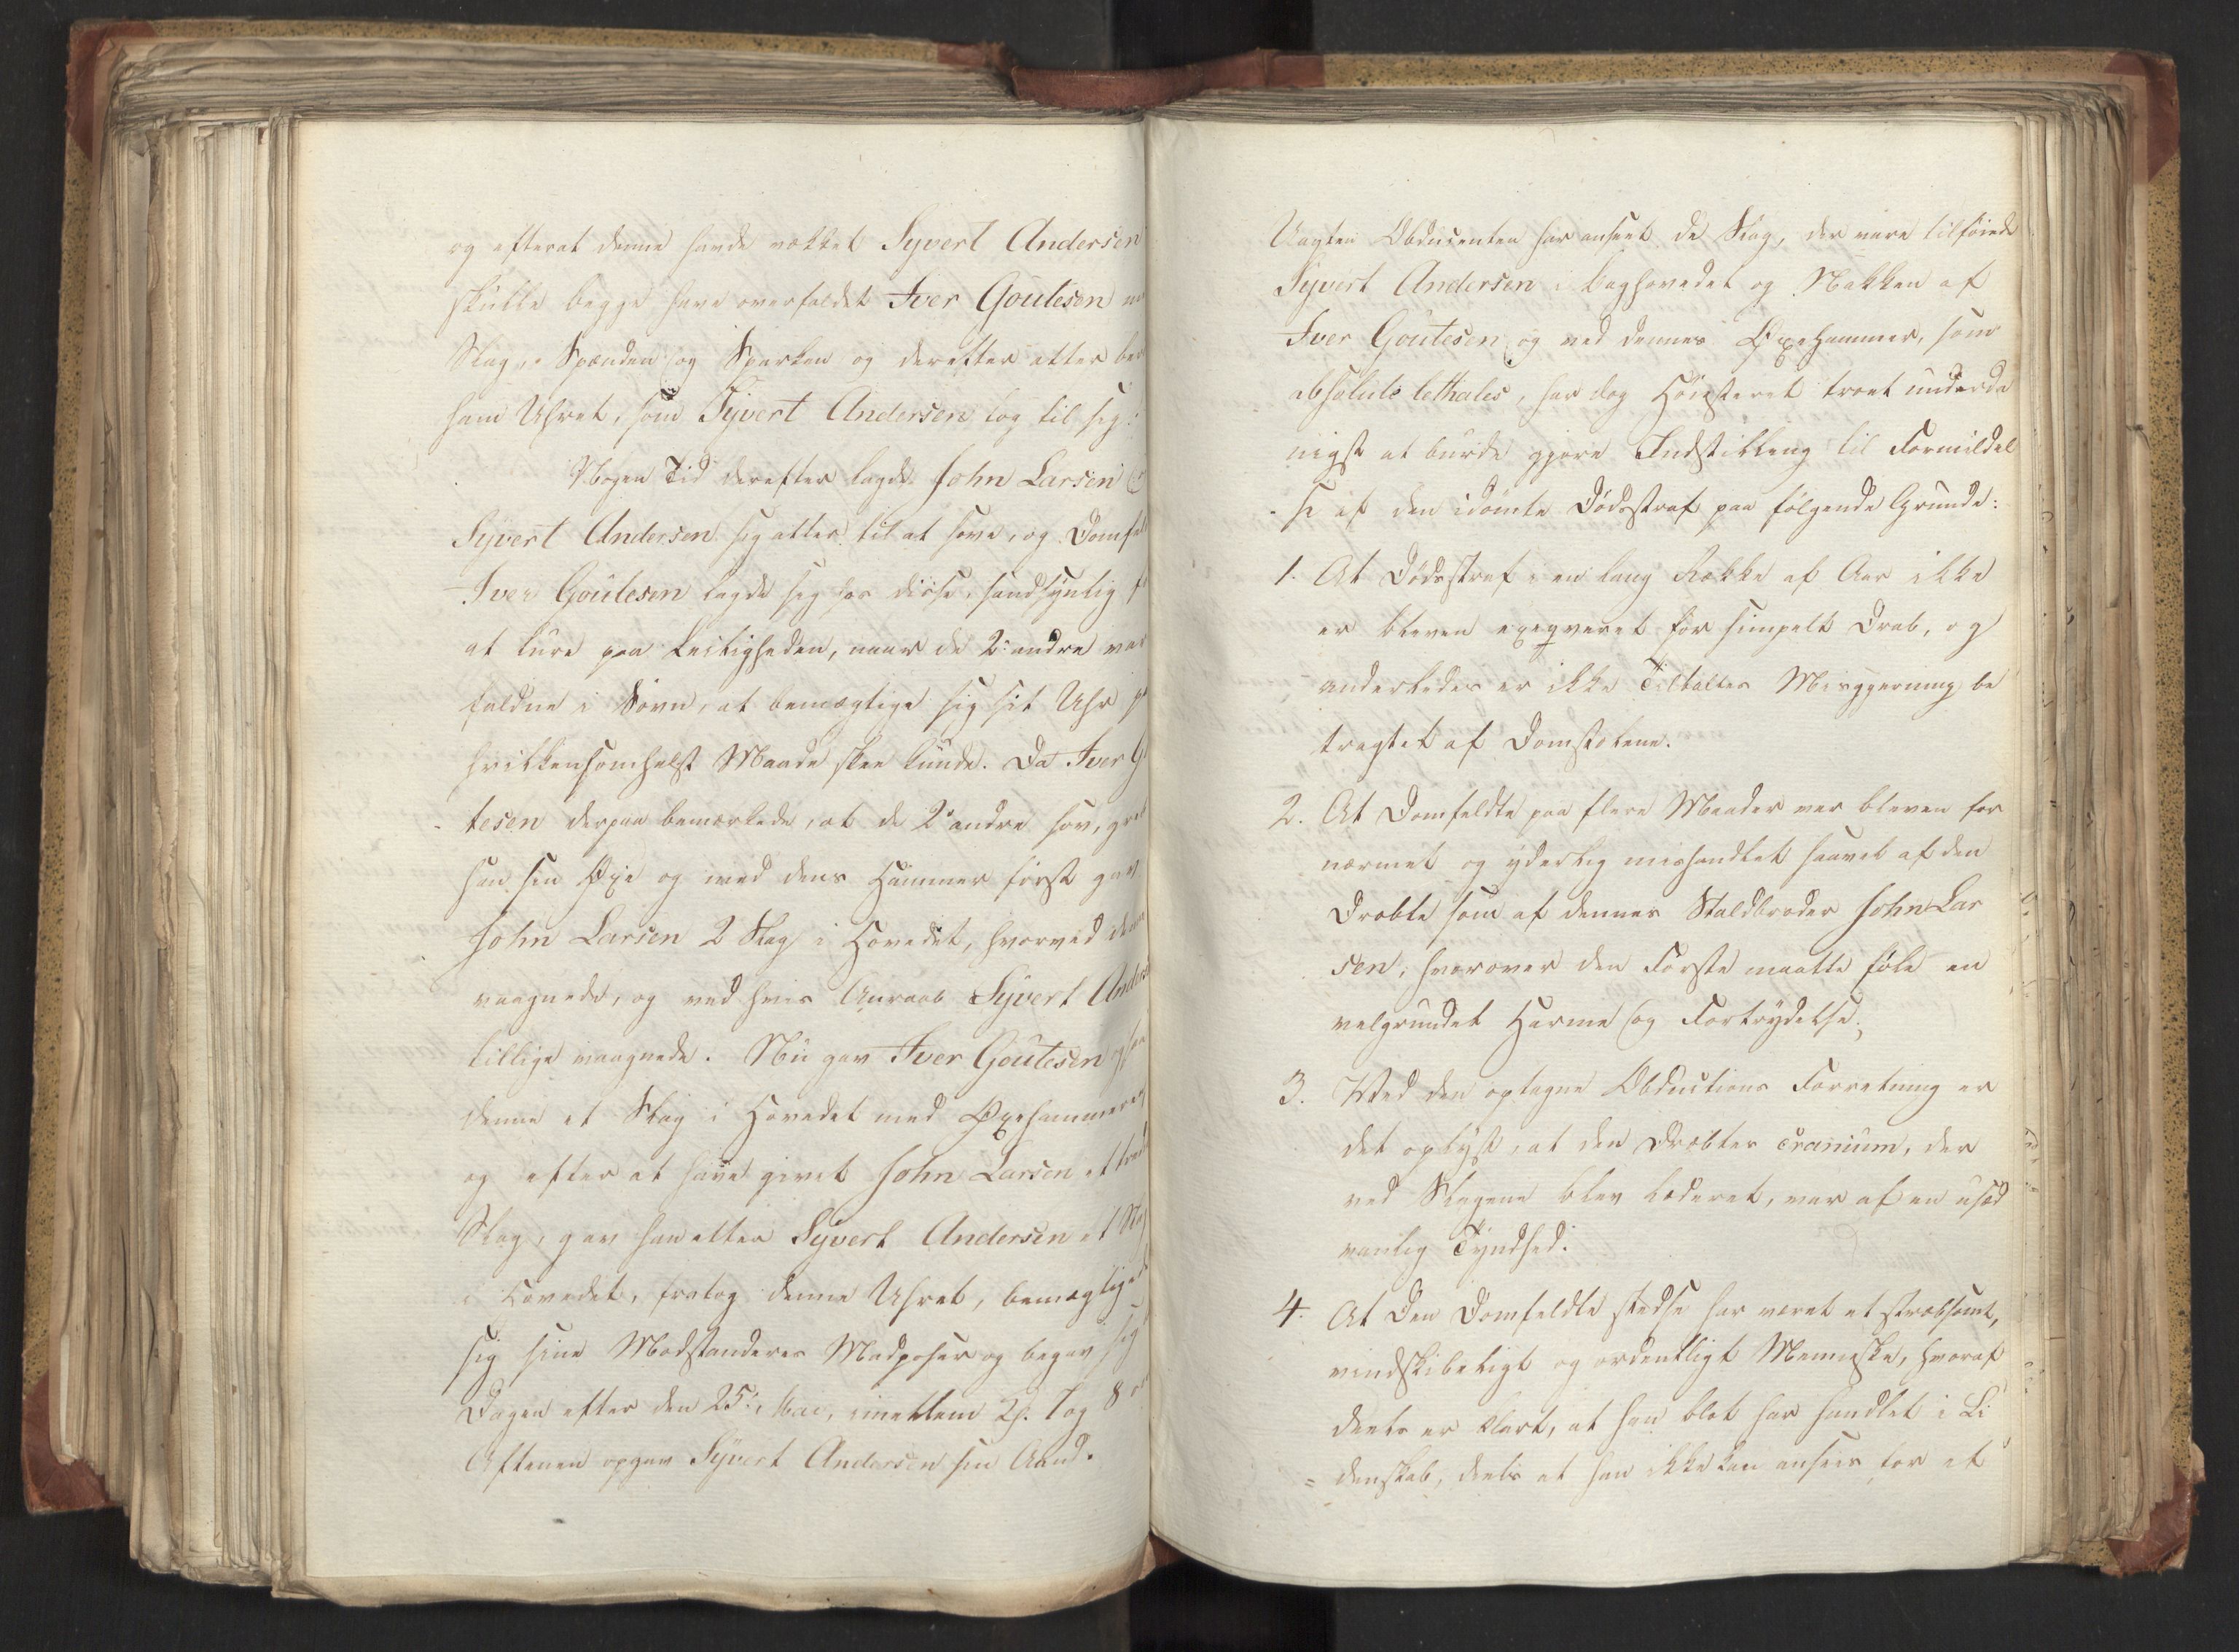 og efterat denne havde vækket Syvert Andersen
skulle begge have overfaldet Iver Goutesen
Slag, Spænden og Sparken og derefter atter
ham Uhret, som Syvert Andersen tog til sig.
Nogen Tid derefter lagde John Larsen
Syvert Andersen sig atter til at sove, og
Iver Goutesen lagde sig hos disse, sandsynlig
at lure paa Leiligheden, naar de 2de andre
faldne i Søvn, at bemægtige sig sit Uhr
hvilkensomhelst Maade skee kunde. Da Iver
tesen derpaa bemærkede, at de 2de andre sov,
han sin Øxe og med dens Hammer først gav
John Larsen 2 Slag i Hovedet, hvorved
vaagnede, og ved hvis Anraab Syvert
tillige vaagnede. Nu gav Iver Goutesen
denne et Slag i Hovedet med Øxehammeren
og efter at have givet John Larsen et
Slag, gav han atter Syvert Andersen et Slag
i Hovedet, fratog denne Uhret, bemægtigede
sig sine Modstanderes Madposer og begav sig
Dagen efter den 25de Mai, imellem Kl. 7 og 8
Aftenen opgav Syvert Andersen sin Aand.
Uagten Obducenten har anseet de Slag, der vare tilføiede
Syvert Andersen i Baghovedet og Nakken af
Iver Goutesen og med dennes Øxehammer, som
absolute lethales, har dog Høiesteret troet underda
nigst at burde gjøre Indstilling til Formildel
-se af den idømte Dødsstraf paa følgende Grunde:
1. At Dødsstraf i en lang Række af Aar ikke
er bleven exeqveret for simpelt Drab, og
anderledes er ikke Tiltaltes Misgjerning be
tragtet af Domstolene.
2. At Domfældte paa flere Maader var bleven for
nærmet og yderlig mishandlet saavel af den
Dræbte som af dennes Staldbroder John Lar
sen, hvorover den Første maatte føle en
velgrundet Harme og Fortrydelse;
3. Ved den optagne Obductions Forretning er
det oplyst, at den Dræbtes Cranium, der
ved Slagene blev læderet, var af en usæd
vanlig Tyndhed.
4. At Den Domfældte stedse har været et stræbsomt,
vindskibeligt og ordentligt Menneske, hvoraf
deels er klart, at han blot har handlet i Li
=denskab, deels at han ikke kan ansees for et